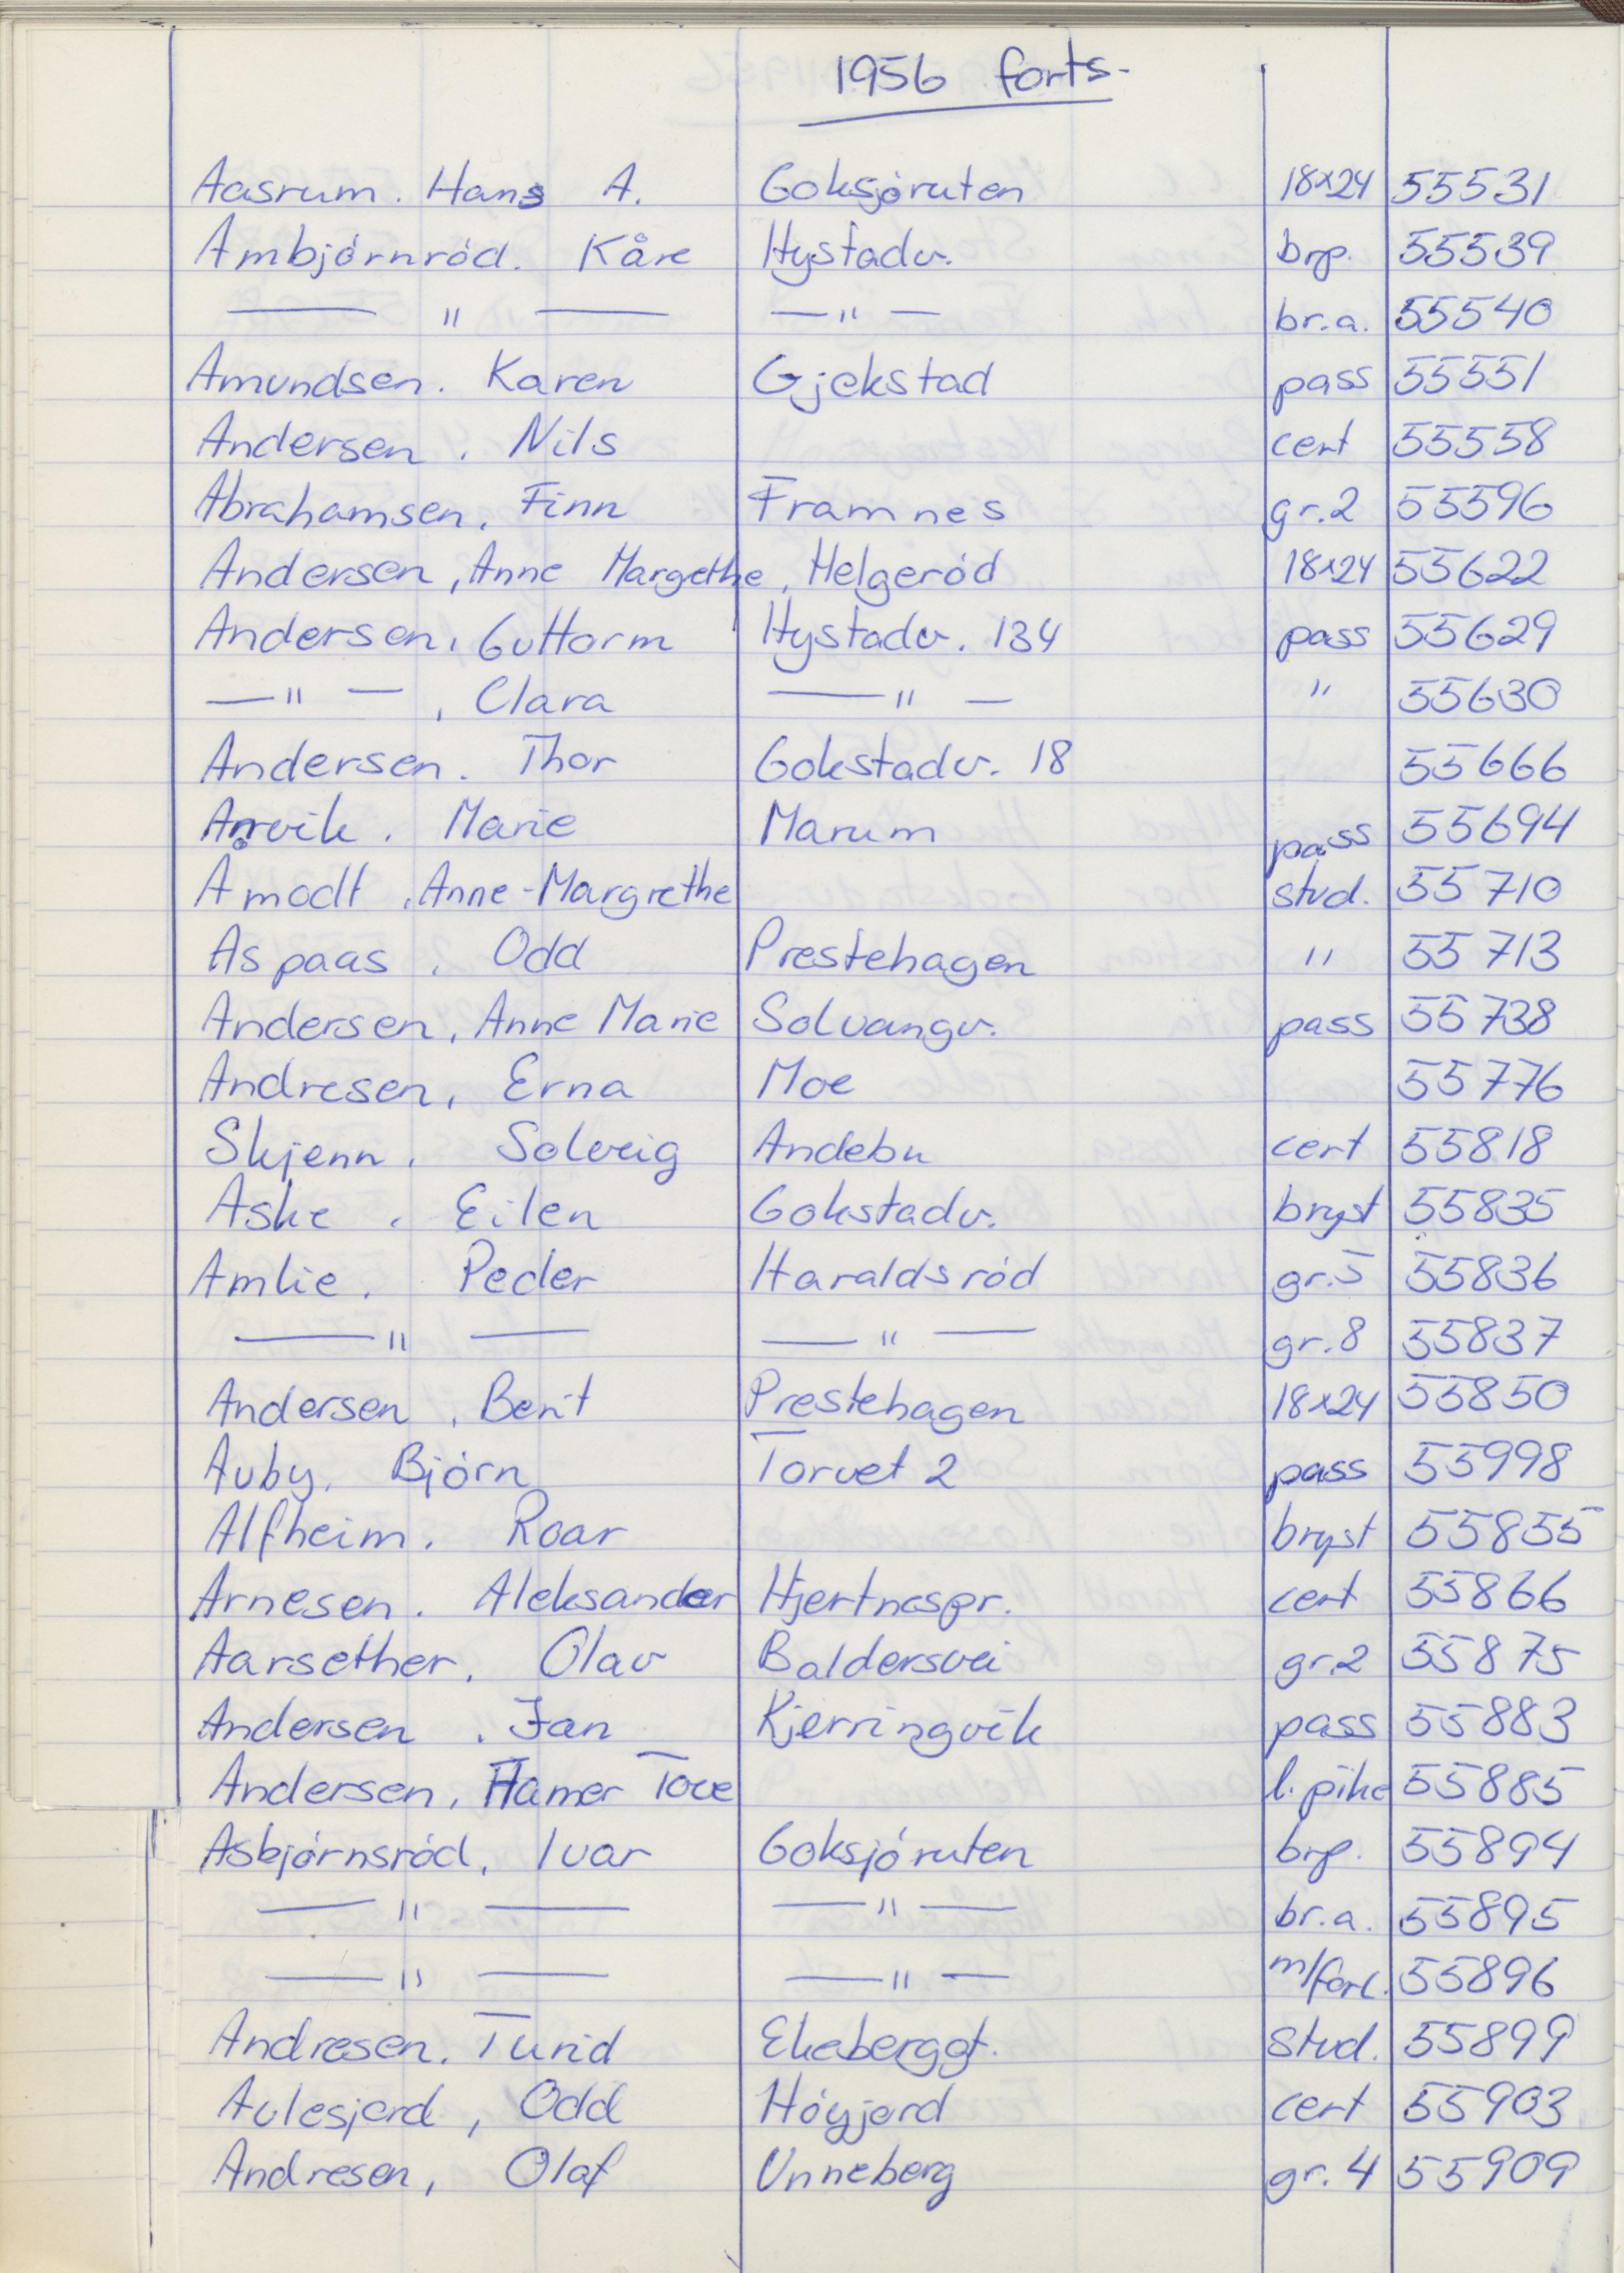 1956 forts.
Aasrum. Hans A. Goksjóruten 18x24 55531
Ambjórnród. Kåre Hystadv. brp. 55539
— " — — " — br.a. 55540
Amundsen. Karen Gjekstad pass 55551
Andersen. Nils cert 55558
Abrahamsen, Finn Framnes gr.2 55596
Andersen, Anne Margethe, Helgeród 18x24 55622
Andersen, Guttorm Hystadv. 134 pass 55629
— " —, Clara — " — " 55630
Andersen. Thor Gokstadv. 18 55666
Arvik. Marie Marum pass 55694
Åmodt, Anne-Margrethe stud. 55710
Aspaas, Odd Prestehagen " 55713
Andersen, Anne Marie Solvangv. pass 55738
Andresen, Erna Moe 55776
Skjenn. Solveig Andebu cert 55818
Aske. Eilen Gokstadv. bryst 55835
Amlie. Peder Haraldsród gr.5 55836
— " — — " — gr.8 55837
Andersen, Berit Prestehagen 18x24 55850
Auby. Bjórn Torvet 2 pass 55998
Alfheim. Roar bryst 55855
Arnesen. Aleksander Hjertnespr. cert 55866
Aarsether, Olav Baldersvei gr.2 55875
Andersen. Jan Kjerringvik pass 55883
Andersen, Hamer Tove l. pike 55885
Asbjórnsród, Ivar Goksjóruten brp. 55894
— " — — " — br.a. 55895
— " — — " — m/forl. 55896
Andresen. Turid Ekeberggt. stud. 55899
Aulesjord, Odd Hóyjord cert 55903
Andresen, Olaf Unneberg gr. 4 55909